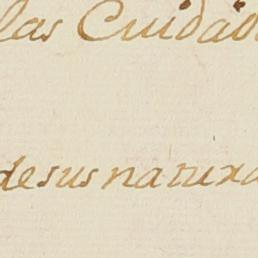 las Cuidad
de sus natura